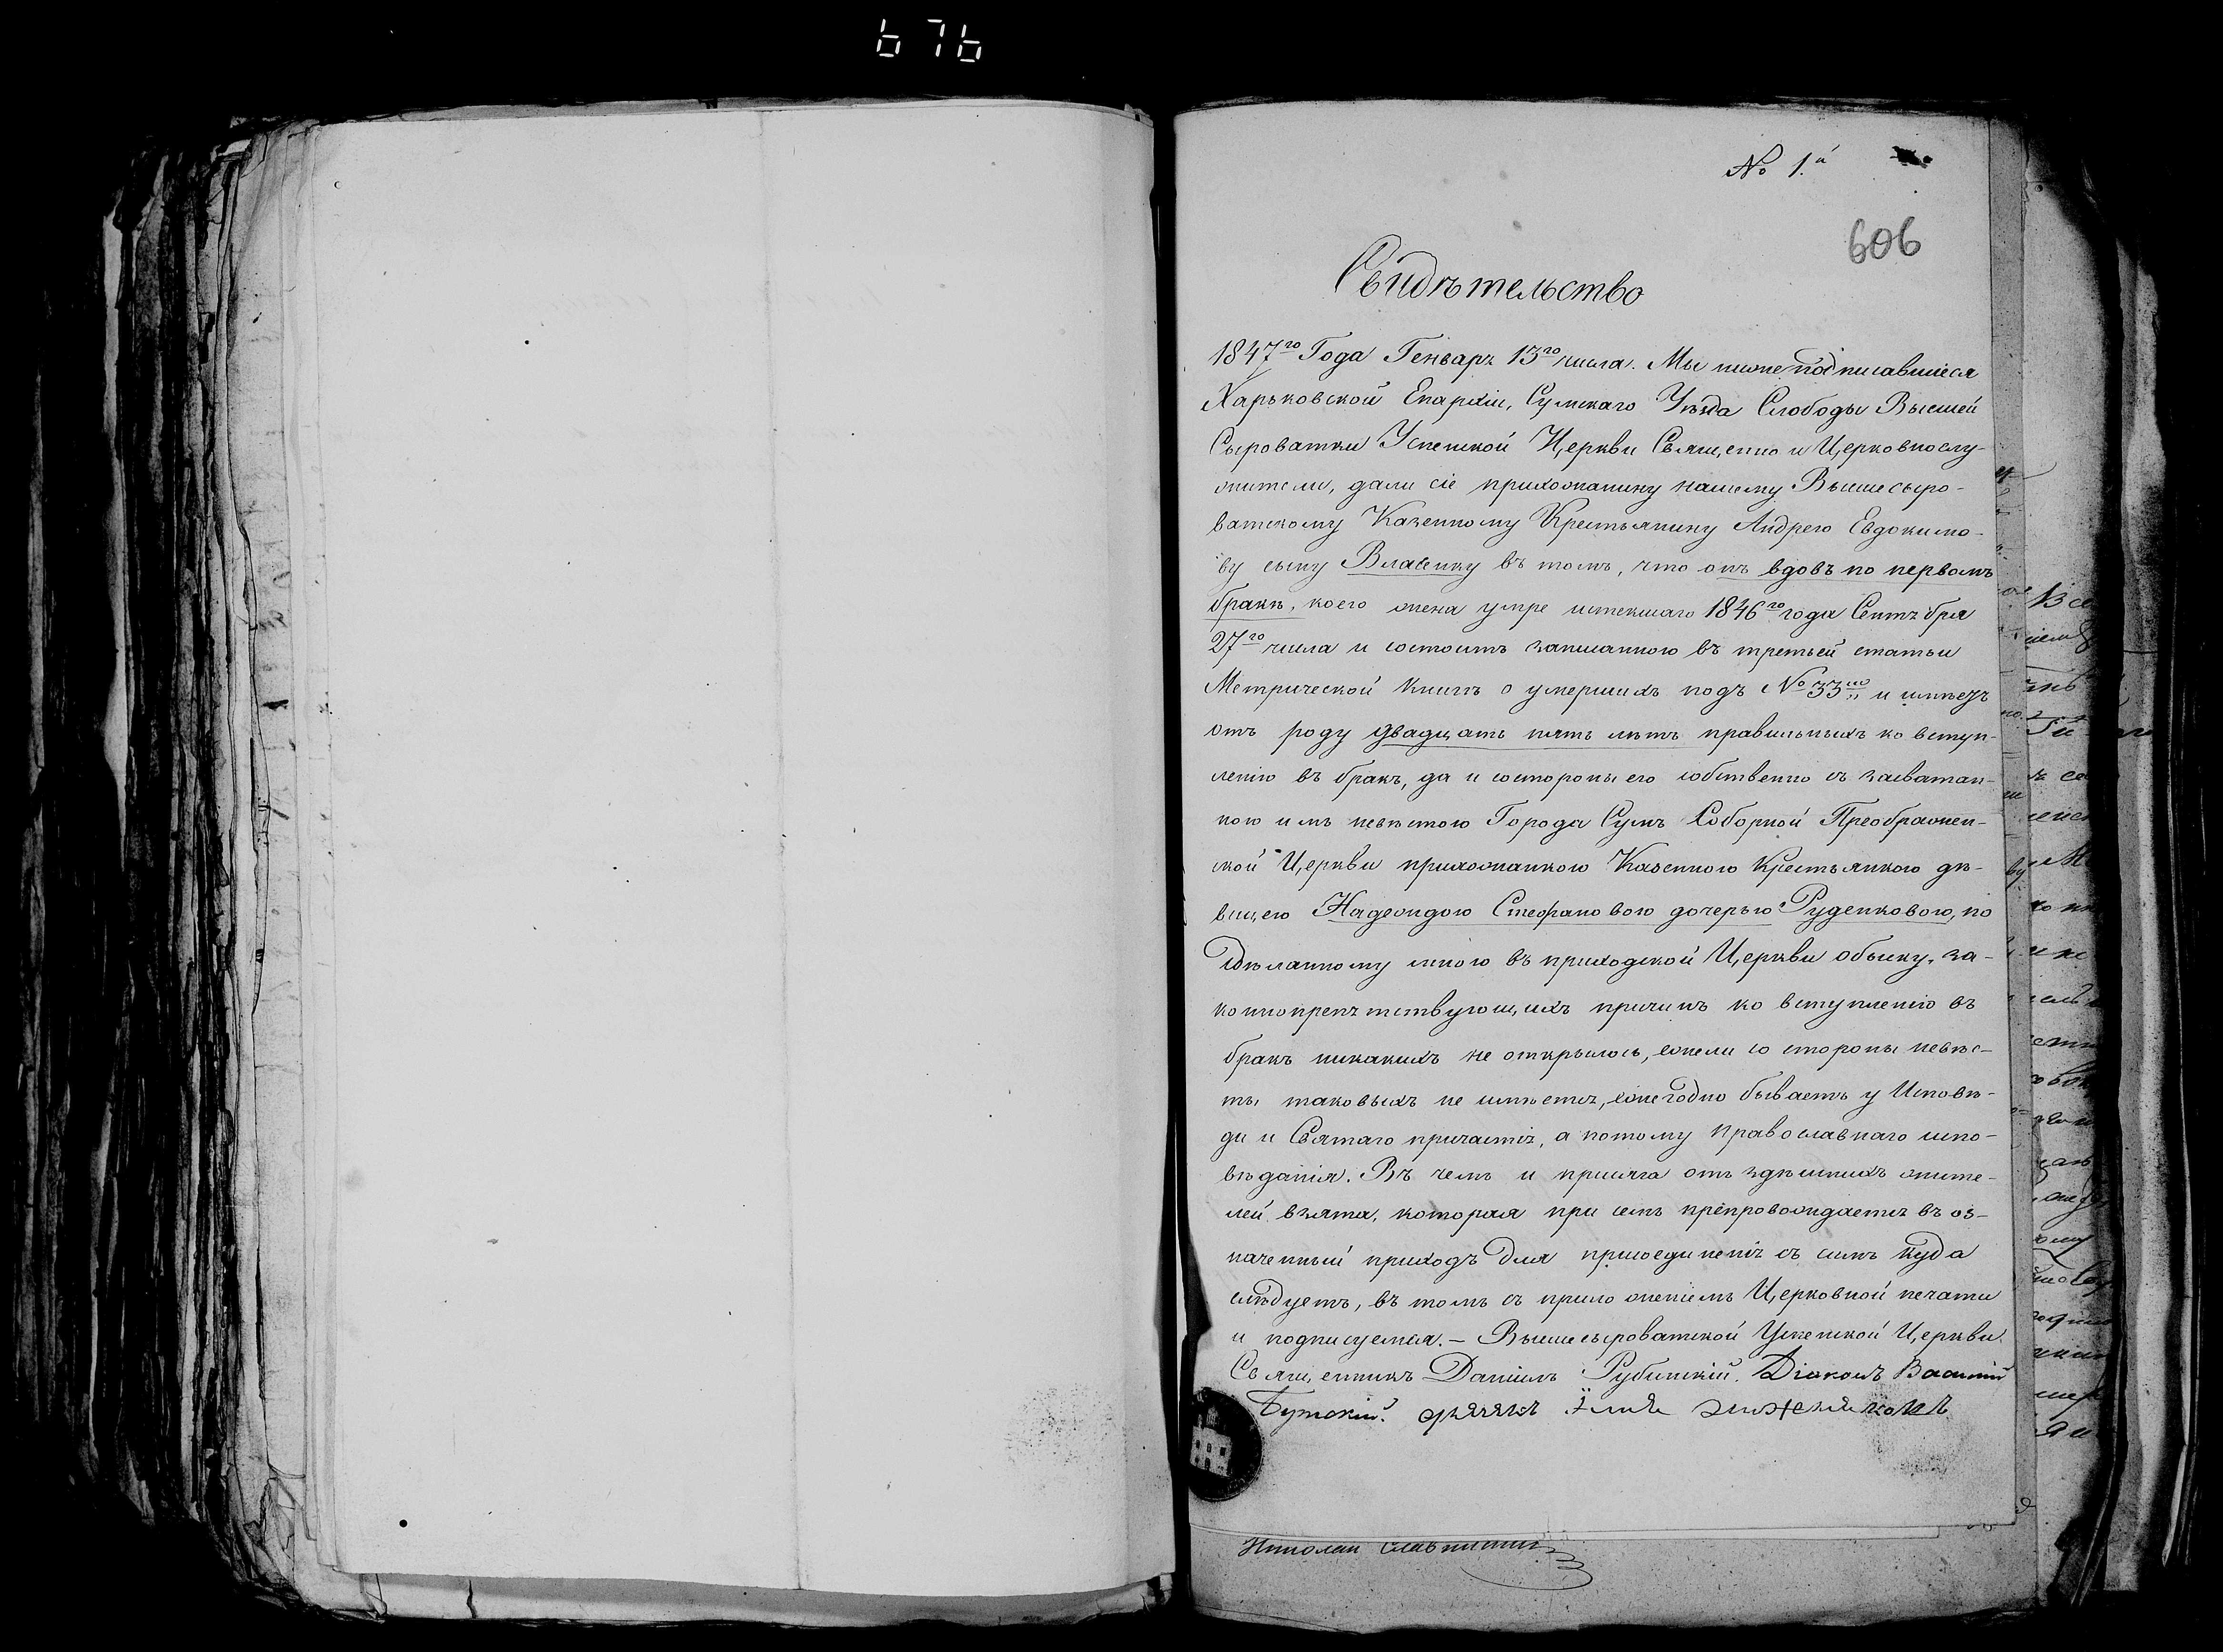 676
№ 1.й
606
Свидѣтельство
1847го Года Генваря 13го числа. Мы нижеподписавшіеся
Харьковской Епархіи, Сумскаго Уѣзда Слободы Высшей
Сыроватки Успенской Церкви Священно и Церковнослу-
жители, дали сіе прихожанину нашему Вышесыро-
ватскому Казенному Крестьянину Андрею Евдокимо-
ву сыну Власенку въ томъ, что онъ вдовъ по первомъ
бракѣ, коего жена умре истекшаго 1846го года Сентября
27го числа и состоитъ записанною въ третьей статьи
Метрической книгѣ о умершихъ подъ № 33 и имѣетъ
отъ роду двадцать пять лѣтъ правильныхъ ко вступ-
ленію въ бракъ, да и состороны его собственно съ засватан-
ною имъ невѣстою Города Сумъ Соборной Преображен-
ской Церкви прихожанкою Казенною Крестьянкою дѣ-
вицею Надеждою Стефановою дочерью Руденковою, по
сдѣланному мною въ приходской Церкви обыску, за-
коннопрепятствующихъ причинъ ко вступленію въ
бракъ никакихъ не открылось, ежели со стороны невѣс-
ты таковыхъ не имѣется, ежегодно бываетъ у Исповѣ-
ди и Святаго причастія, а потому православнаго испо-
вѣданія. Въ чемъ и присяга отъ здѣшнихъ жите-
лей взята, которая при семъ препровождается въ оз-
наченный приходъ для присоединенія съ симъ куда
слѣдуетъ, въ томъ съ приложеніемъ Церковной печати
и подписуемся. – Вышесыроватской Успенской Церкви
Священникъ Даніилъ Рубинскій. Діаконъ Василій
Бутскій. дьячокъ Илія
Николай